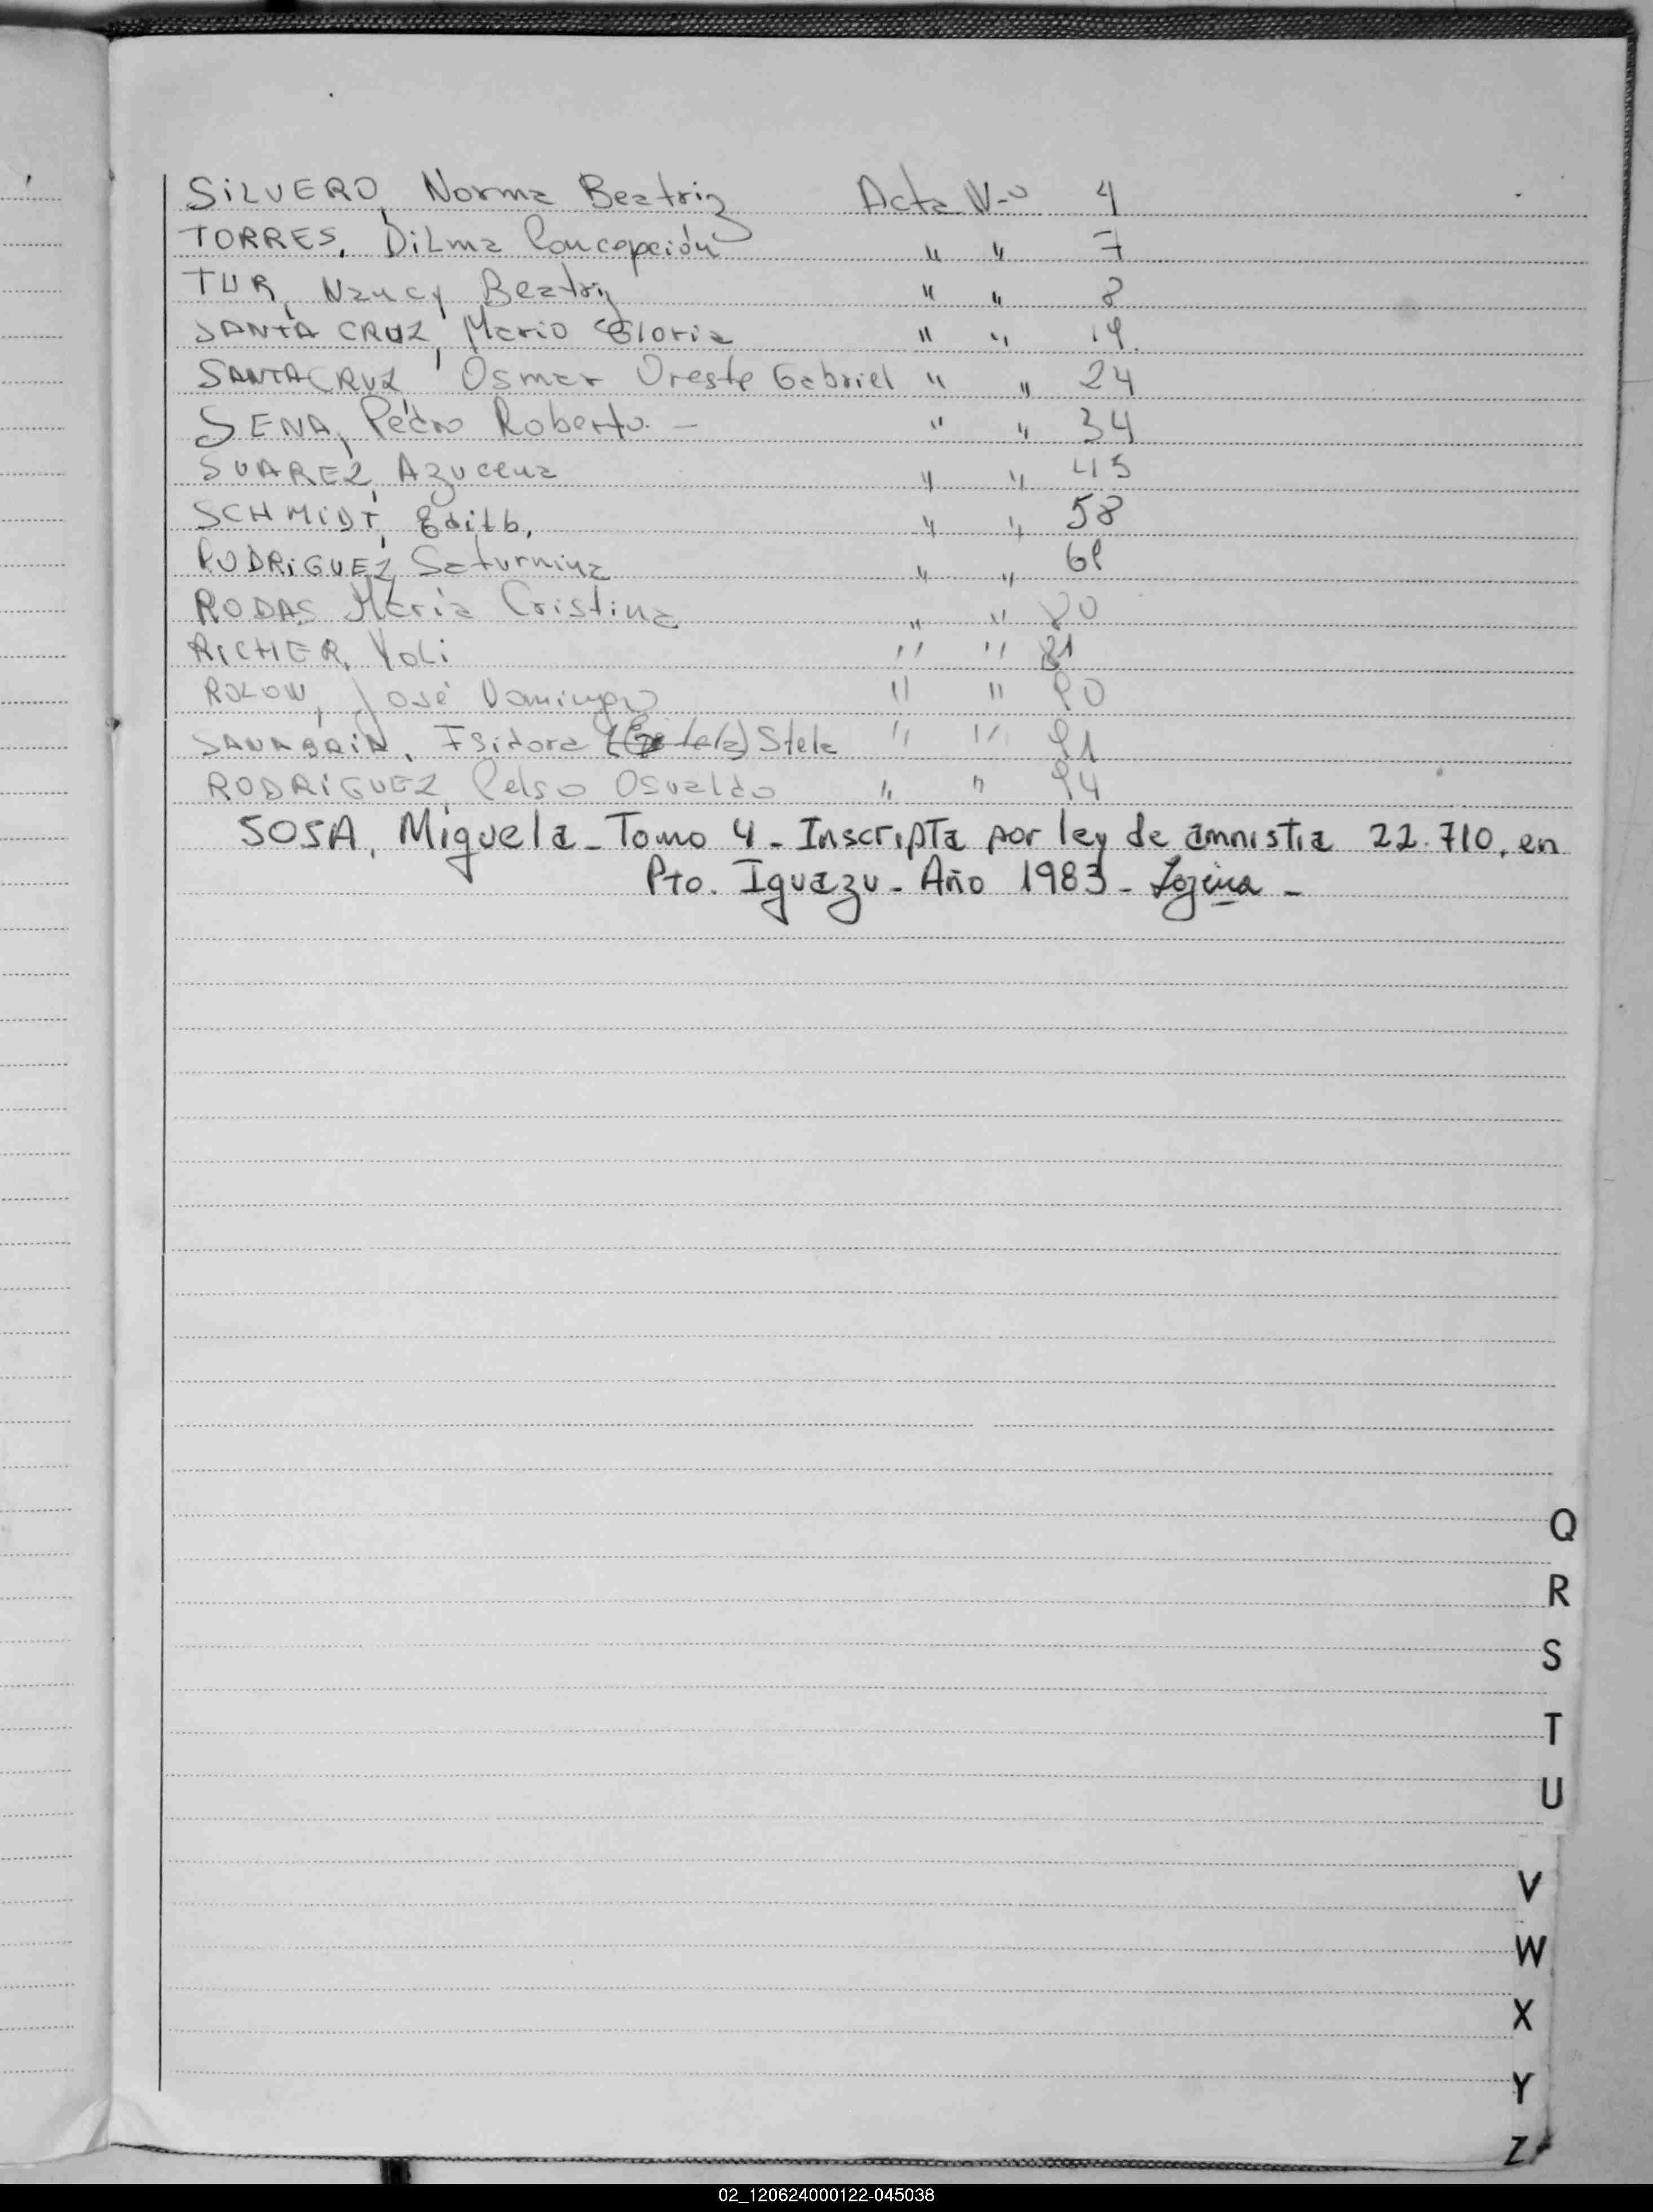 SILVERO, Norma Beatriz Acta N-o 4
TORRES, Dilma Concepción " " 7
TUR, Nancy Beatriz " " 8
SANTA CRUZ, Mario Gloria " " 19.
SANTACRUZ, Osmar Oreste Gabriel " " 24
SENA, Pedro Roberto. - " " 34
SUAREZ, Azucena " " 45
SCHMIDT, Edith, " " 58
RODRIGUEZ, Saturnina " "
RODAS, María Cristina " " 80
RICHER, Yoli " " 81
ROLON, José Domingo " " 90
SANABRIA, Isidora Stela " " 91
RODRIGUEZ, Celso Osvaldo " " 94
SOSA, Miguela - Tomo 4 - Inscripta por ley de amnistia 22.710, en
Pto. Iguazu - Año 1983 -
Q
R
S
T
U
V
W
X
Y
Z
02_120624000122-045038